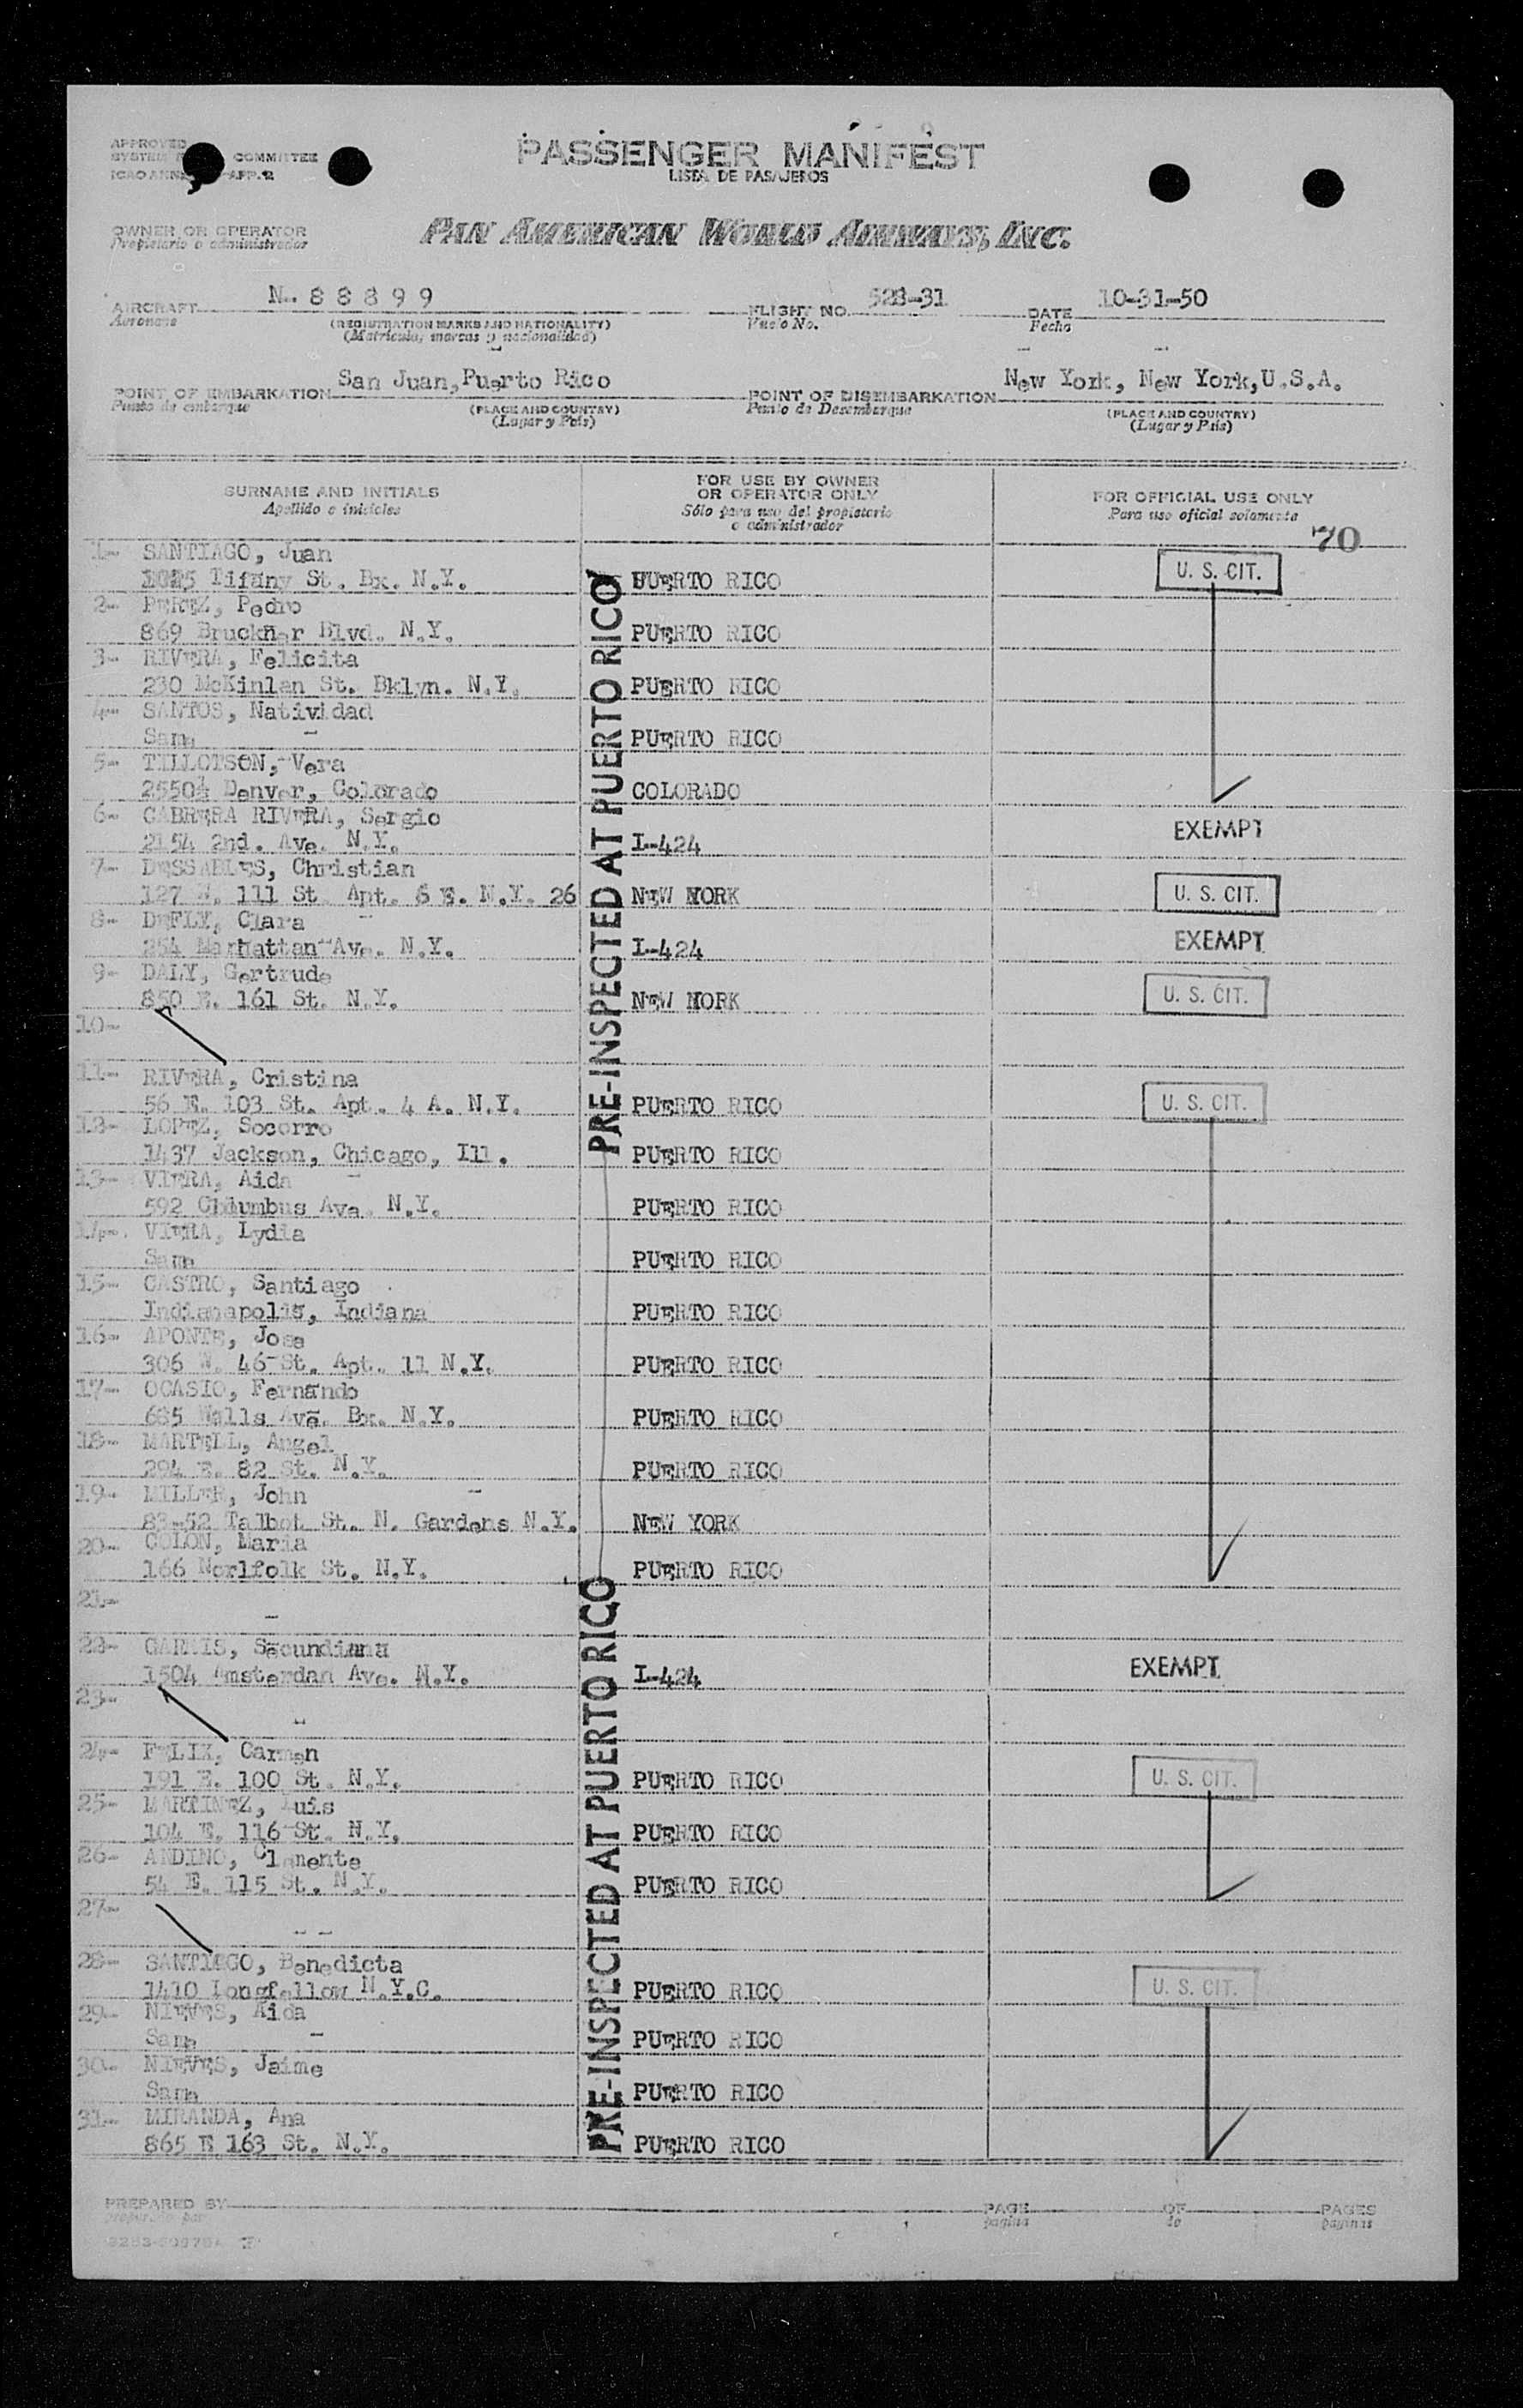 APPROVED
SYSTEM COMMITTEE
ICAO ANNEX APP. 2
PASSENGER MANIFEST
LISTA DE PASAJEROS
OWNER OR OPERATOR
Propietario o administrador
PAN AMERICAN WORLD AIRWAYS, INC.
AIRCRAFT N.. 8 8 8 9 9 FLIGHT NO. 528-31 DATE 10-31-50
Aeronave (REGISTRATION MARKS AND NATIONALITY) Vuelo No. Fecha
(Matricula, marcas y nacionalidad)
POINT OF EMBARKATION San Juan, Puerto Rico POINT OF DISEMBARKATION New York, New York, U.S.A.
Punto de embarque (PLACE AND COUNTRY) Punto de Desembarque (PLACE AND COUNTRY)
(Lugar y País) (Lugar y País)
SURNAME AND INITIALS FOR USE BY OWNER OR OPERATOR ONLY FOR OFFICIAL USE ONLY
Apellido e iniciales Sólo para uso del propietario o administrador Para uso oficial solamente
70
PRE-INSPECTED AT PUERTO RICO
1- SANTIAGO, Juan
Tifany St. Bx. N.Y. PUERTO RICO U. S. CIT.
2- PEREZ, Pedro
869 Bruckner Blvd. N.Y. PUERTO RICO
3- RIVERA, Felicita
230 McKinlan St. Bklyn. N.Y. PUERTO RICO
4- SANTOS, Natividad
Same PUERTO RICO
5- TILLOTSON, Vera
2550½ Denver, Colorado COLORADO
6- CABRERA RIVERA, Sergio
2154 2nd. Ave. N.Y. I-424 EXEMPT
7- DESSABLES, Christian
127 W. 111 St. Apt. 6 E. N.Y. 26 NEW YORK U. S. CIT.
8- DEFLY, Clara
254 Manhattan Ave. N.Y. I-424 EXEMPT
9- DALY, Gertrude
850 E. 161 St. N.Y. NEW YORK U. S. CIT.
10-
11- RIVERA, Cristina
56 E. 103 St. Apt. 4 A. N.Y. PUERTO RICO U. S. CIT.
12- LOPEZ, Socorro
1437 Jackson, Chicago, Ill. PUERTO RICO
13- VIERA, Aida
592 Columbus Ave. N.Y. PUERTO RICO
14- VIERA, Lydia
Same PUERTO RICO
15- CASTRO, Santiago
Indianapolis, Indiana PUERTO RICO
16- APONTE, Jose
306 W. 46 St. Apt. 11 N.Y. PUERTO RICO
17- OCASIO, Fernando
685 Walls Ave. Bx. N.Y. PUERTO RICO
18- MARTELL, Angel
294 E. 82 St. N.Y. PUERTO RICO
19- MILLER, John
83-52 Talbot St. N. Gardens N.Y. NEW YORK
20- COLON, Maria
166 Norlfolk St. N.Y. PUERTO RICO
PRE-INSPECTED AT PUERTO RICO
21-
22- Secundiana
1504 Amsterdan Ave. N.Y. I-424 EXEMPT
23-
24- FELIX, Carmen
191 E. 100 St. N.Y. PUERTO RICO U. S. CIT.
25- MARTINEZ, Luis
104 E. 116 St. N.Y. PUERTO RICO
26- ANDINO, Clemente
54 E. 115 St. N.Y. PUERTO RICO
27-
28- SANTIEGO, Benedicta
1410 Longfellow N.Y.C. PUERTO RICO U. S. CIT.
29- NIEVES, Aida
Same PUERTO RICO
30- NIEVES, Jaime
Same PUERTO RICO
31- MIRANDA, Ana
865 E 163 St. N.Y. PUERTO RICO
PREPARED BY PAGE OF PAGES
preparado por pagina de paginas